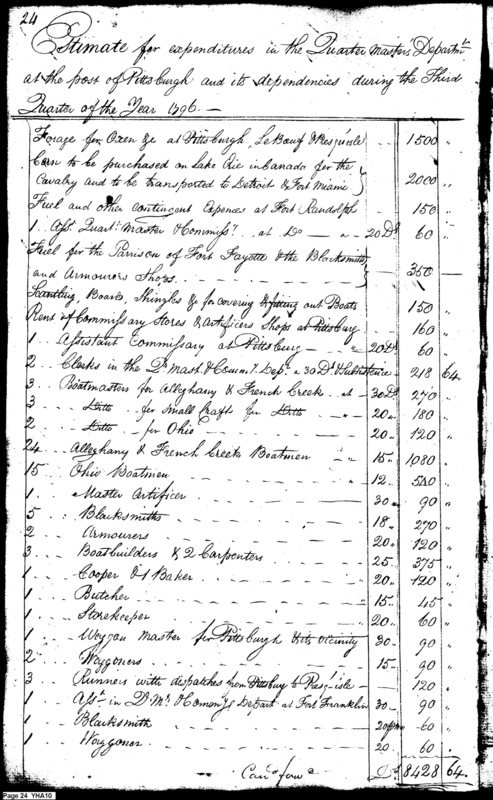 24
Estimate for expenditures in the Quarter Masters' Departmt.
at the post of Pittsburgh and its dependencies during the Third
Quarter of the Year 1796.—
Forage for Oxen &c at Pittsburgh LeBeuf & Presqu'isle — 1500 "
Corn to be purchased on Lake Erie in Canada for the
Cavalry and to be transported to Detroit & Fort Miami } 2000 "
Fuel and other contingent Expences at Fort Randolph 150 "
1 . Asst. Quartr. Master & Commissy. .. at Do — " — 20 Ds 60 "
Fuel for the Garrison of Fort Fayette & the Blacksmiths
and Armourers Shops . . } — 350 —
Scantling, Boards, Shingles &c for covering & fitting out Boats 150 "
Rent of Commissary Stores & Artificers Shops at Pittsburg 160 "
1 . . Assistant Commissary at Pittsburg — " 20 Ds 60 "
2 . . Clerks in the Qr. Mast. & Commy. Dept. a 30 Ds & Subsistence 218 64
3 . . Boatmasters for Alleghany & French Creek .. at — 30 Ds 270 "
3 . . Ditto . . for Small Crafts for Ditto " 20 " 180 "
2 . . Ditto — for Ohio " 20 " 120 "
24 . . Alleghany & French Creek Boatmen " 15 " 1080 "
15 . . Ohio Boatmen " 12 . 540 "
1 . . . Master Artificer 30 " 90 "
5 . . . Blacksmiths 18 " 270 "
2 . . . Armourers 20 " 120 "
3 . . . Boatbuilders & 2 Carpenters 25 . 375 "
1 . . . Cooper & 1 Baker 20 " 120 "
1 . . . Butcher 15 " 45 "
1 . . . Storekeeper 20 " 60 "
1 . . . Waggon Master for Pittsburgh & its vicinity 30 . 90 "
2 . . . Waggoners 15 " 90 "
3 . . . Runners with dispatches from Pittsburg to Presq'isle — 120 "
1 . . . Asst. in Qr. Mrs & Commys Depart at Fort Franklin 30 — 90 "
1 . . . Blacksmith 20 60 "
1 . . . Waggoner 20 60 "
Card. forwd. Ds 8428 64
Page 24 YHA10